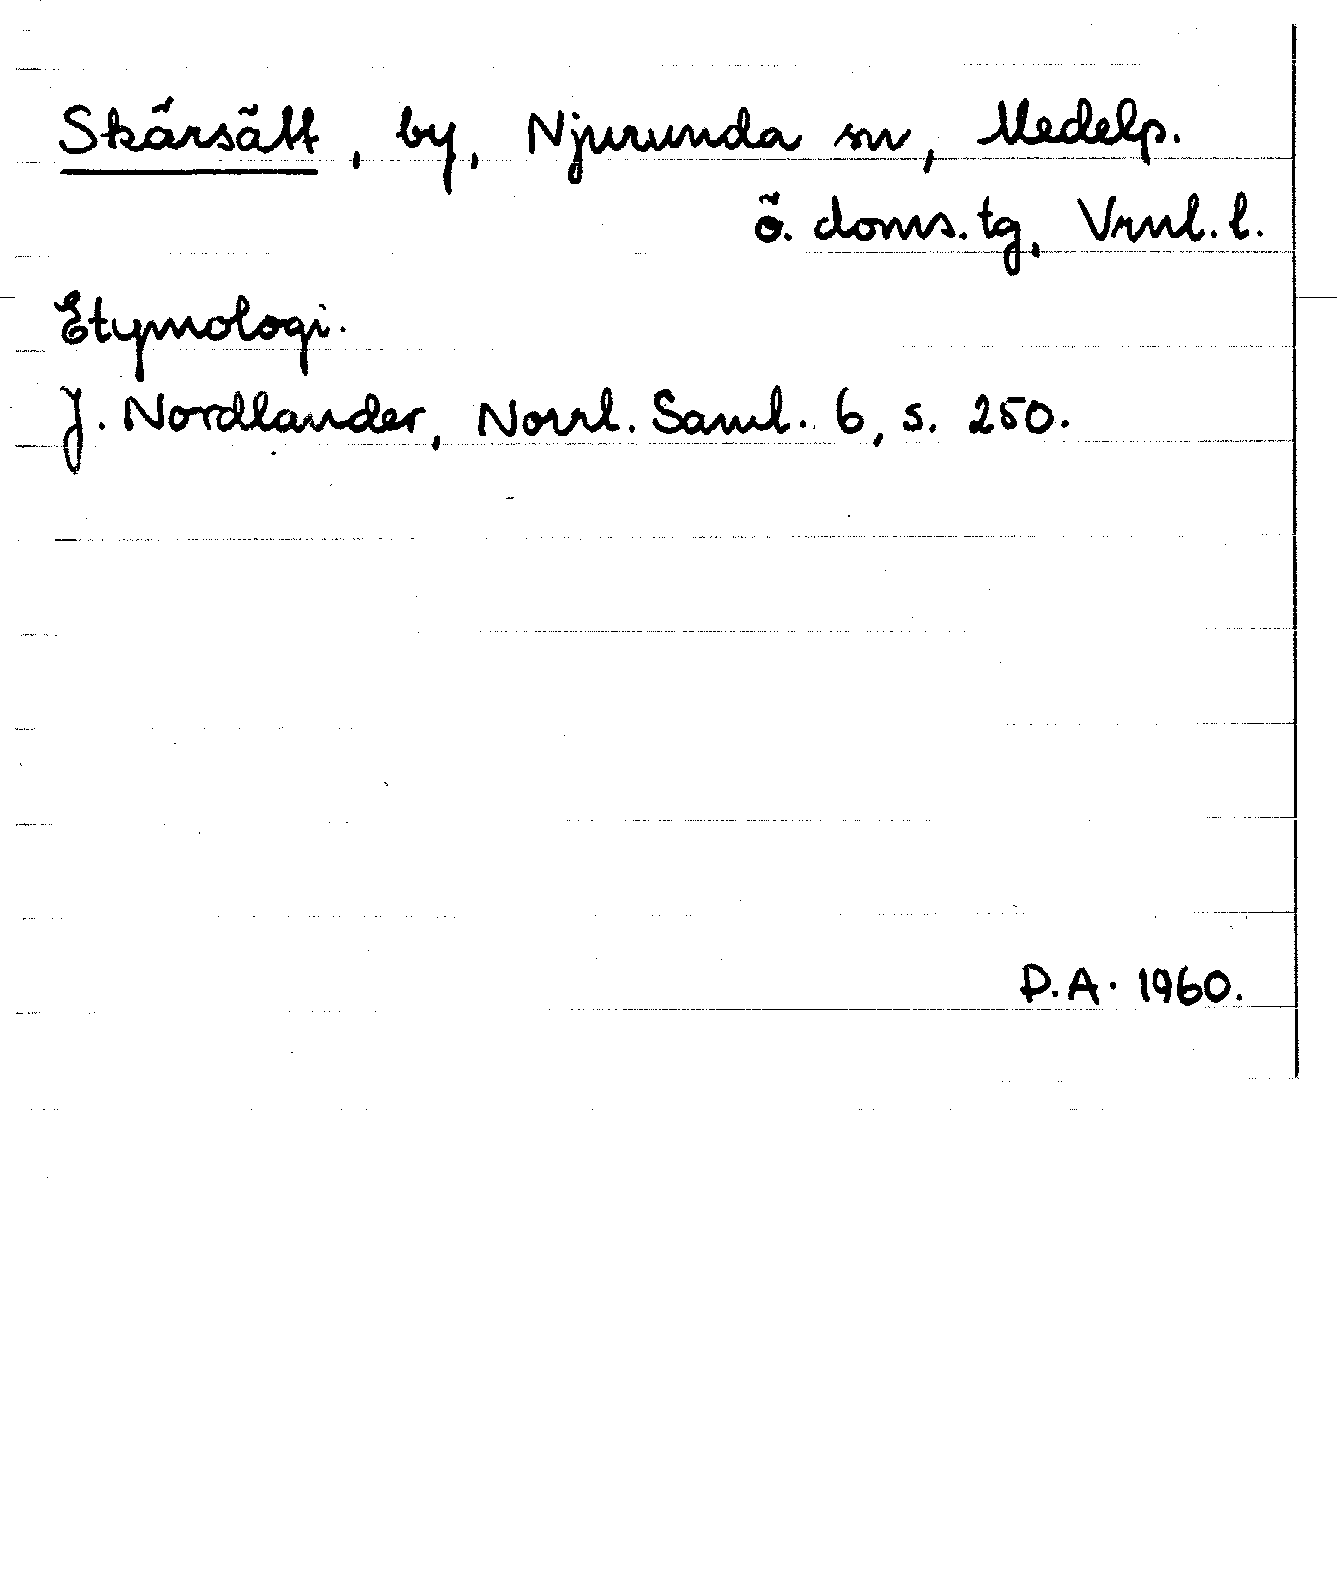 Skärsätt, by, Njurunda sn, Medelp.
ö. doms.tg, Vrnl. l.
Etymologi.
J. Nordlander, Norrl. Saml. 6, s. 250.
D.A. 1960.